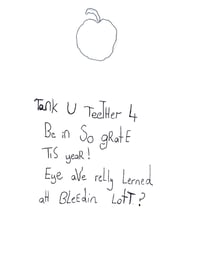 Tank U TeeTHer 4
Be in So gRatE
TiS yeaR!
Eye aVe relly Lerned
aH BLeEdin LotT?